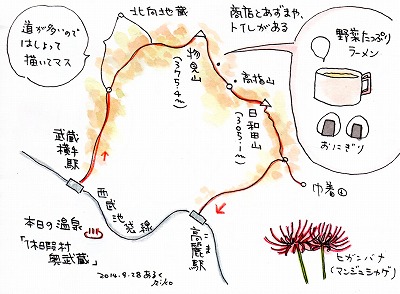 道が多いので
はしょって
描いてマス
北向地蔵
商店とあずまや、
トイレがある
野菜たっぷり
ラーメン
おにぎり
物見山
(375.4m)
高指山
日和田山
(305.1m)
武蔵
横手
駅
西武池袋線
高麗駅
こま
巾着田
本日の温泉
「休暇村
奥武蔵」
2014.9.28あるく
ヒガンバナ
(マンジュシャゲ)